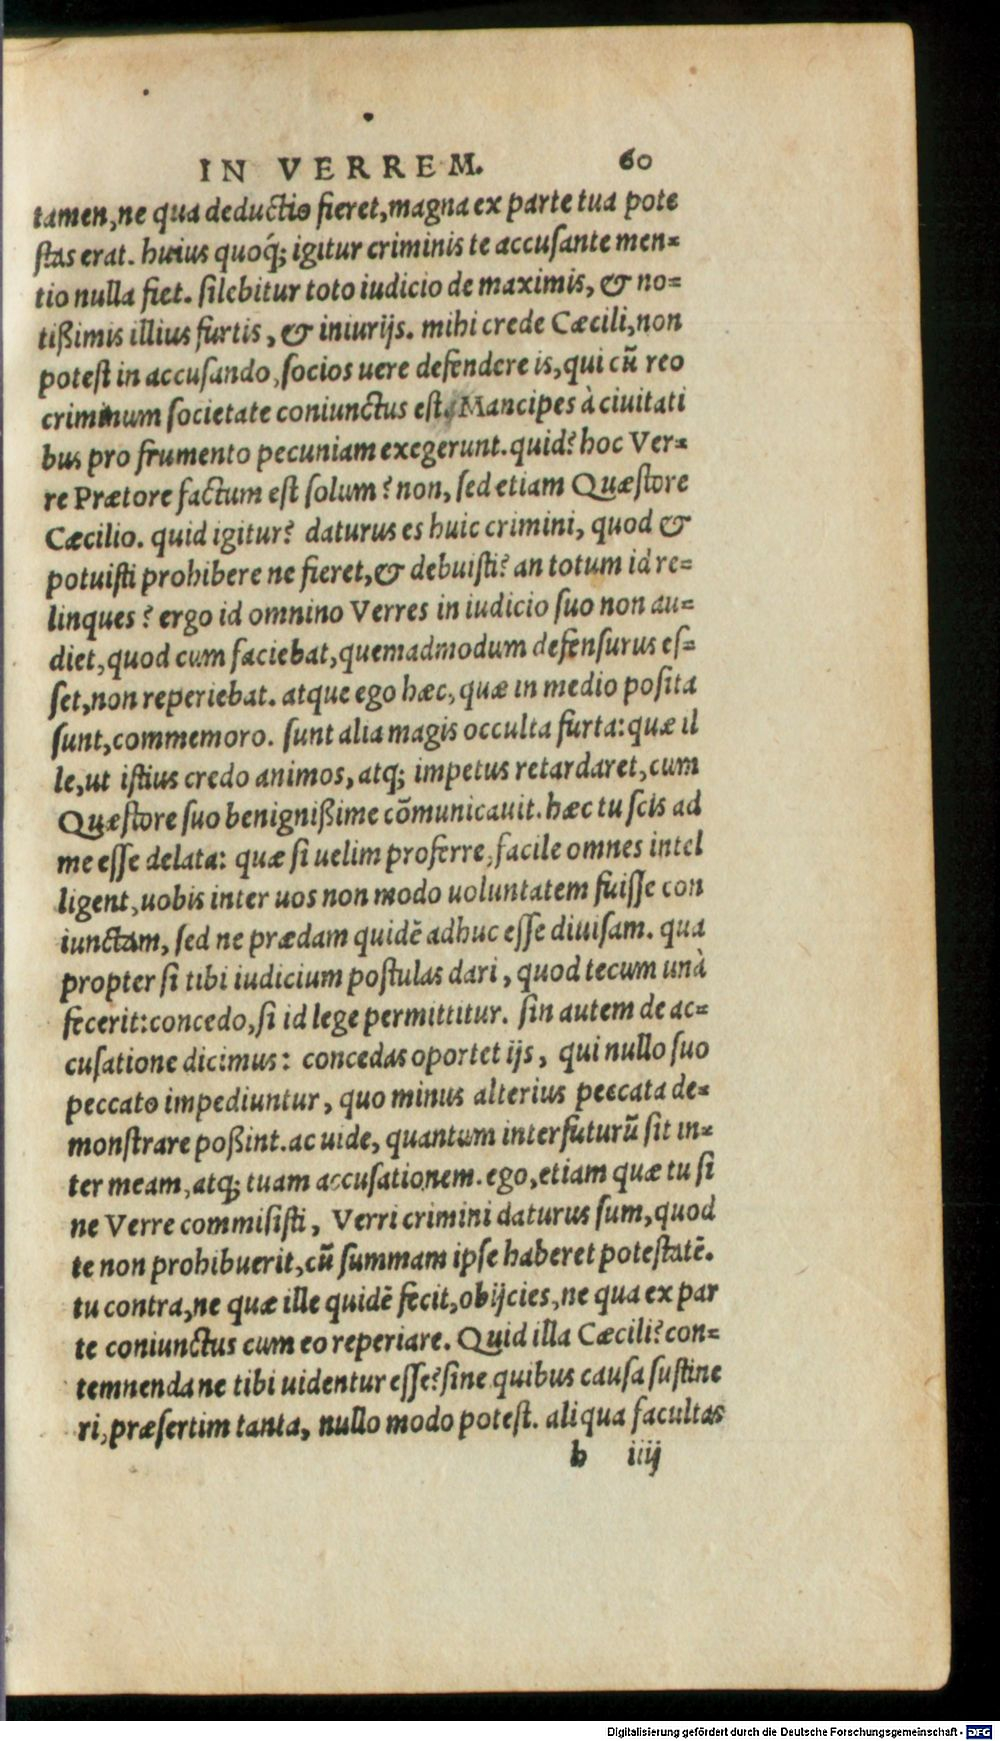 IN VERREM. 60
tamen,ne qua deductio fieret,magna ex parte tua pote
ſtas erat. huius quoq́; igitur criminis te accuſante men-
tio nulla fiet. ſilebitur toto iudicio de maximis, & no-
tißimis illius furtis, & iniurijs. mihi crede Cæcili,non
poteſt in accuſando,ſocios uere defendere is,qui cũ reo
criminum ſocietate coniunctus eſt. Mancipes à ciuitati
bus pro frumento pecuniam exegerunt.quid? hoc Ver-
re Prætore factum eſt ſolum? non, ſed etiam Quæſtore
Cæcilio. quid igitur? daturus es huic crimini, quod &
potuiſti prohibere ne fieret,& debuiſti? an totum id re-
linques? ergo id omnino Verres in iudicio ſuo non au-
diet,quod cum faciebat,quemadmodum defenſurus eſ-
ſet,non reperiebat. atque ego hæc, quæ in medio poſita
ſunt,commemoro. ſunt alia magis occulta furta:quæ il
le,ut iſtius credo animos, atq; impetus retardaret,cum
Quæſtore ſuo benignißime cõmunicauit. hæc tu ſcis ad
me eſſe delata: quæ ſi uelim proferre,facile omnes intel
ligent,uobis inter uos non modo uoluntatem fuiſſe con
iunctam, ſed ne prædam quidẽ adhuc eſſe diuiſam. qua
propter ſi tibi iudicium poſtulas dari, quod tecum unà
fecerit:concedo,ſi id lege permittitur. ſin autem de ac-
cuſatione dicimus: concedas oportet ijs, qui nullo ſuo
peccato impediuntur, quo minus alterius peccata de-
monſtrare poßint.ac uide, quantum interfuturũ ſit in-
ter meam,atq; tuam accuſationem. ego,etiam quæ tu ſi
ne Verre commiſiſti, Verri crimini daturus ſum,quod
te non prohibuerit,cũ ſummam ipſe haberet poteſtatẽ.
tu contra,ne quæ ille quidẽ fecit,obijcies,ne qua ex par
te coniunctus cum eo reperiare. Quid illa Cæcili? con-
temnenda ne tibi uidentur eſſe? ſine quibus cauſa ſuſtine
ri,præſertim tanta, nullo modo poteſt. aliqua facultas
b iiij
Digitalisierung gefördert durch die Deutsche Forschungsgemeinschaft - DFG